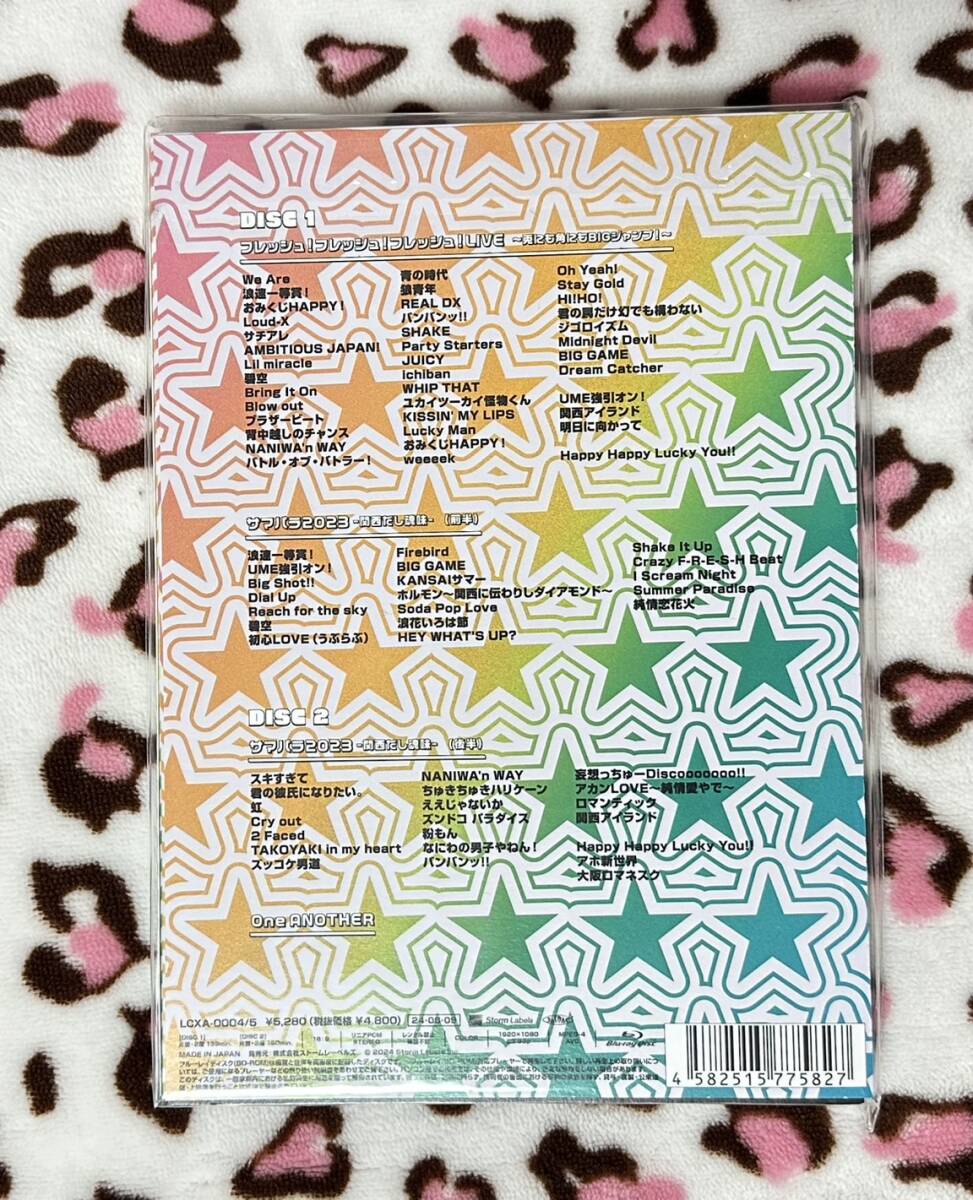 DISC 1
フレッシュ!フレッシュ!フレッシュ!LIVE ~兎にも角にもBIGジャンプ!~
We Are
浪速一等賞!
おみくじHAPPY!
Loud-X
サチアレ
AMBITIOUS JAPAN!
Lil miracle
碧空
Bring It On
Blow out
ブラザービート
背中越しのチャンス
NANIWA'n WAY
バトル・オブ・バトラー!
青の時代
狼青年
REAL DX
バンバンッ!!
SHAKE
Party Starters
JUICY
ichiban
WHIP THAT
ユカイツーカイ怪物くん
KISSIN' MY LIPS
Lucky Man
おみくじHAPPY!
weeeek
Oh Yeah!
Stay Gold
HI!HO!
君の肩だけ幻でも構わない
ジゴロイズム
Midnight Devil
BIG GAME
Dream Catcher
UME強引オン!
関西アイランド
明日に向かって
Happy Happy Lucky You!!
サマパラ2023 -関西だし魂味- (前半)
浪速一等賞!
UME強引オン!
Big Shot!!
Dial Up
Reach for the sky
碧空
初心LOVE(うぶらぶ)
Firebird
BIG GAME
KANSAIサマー
ホルモン~関西に伝わりしダイアモンド~
Soda Pop Love
浪花いろは節
HEY WHAT'S UP?
Shake It Up
Crazy F-R-E-S-H Beat
I Scream Night
Summer Paradise
純情恋花火
DISC 2
サマパラ2023 -関西だし魂味- (後半)
スキすぎて
君の彼氏になりたい。
虹
Cry out
2 Faced
TAKOYAKI in my heart
ズッコケ男道
NANIWA'n WAY
ちゅきちゅきハリケーン
ええじゃないか
ズンドコ パラダイス
粉もん
なにわの男子やねん!
バンバンッ!!
妄想っちゅーDiscooooooo!!
アカンLOVE~純情愛やで~
ロマンティック
関西アイランド
Happy Happy Lucky You!!
アホ新世界
大阪ロマネスク
One ANOTHER
LCXA-0004/5 ¥5,280(税抜価格 ¥4,800) 24-08-09 Storm Labels
COLOR 1920×1080 MPEG-4 AVC Blu-ray Disc
MADE IN JAPAN 発売元:株式会社ストームレーベルズ
4 582515 775827